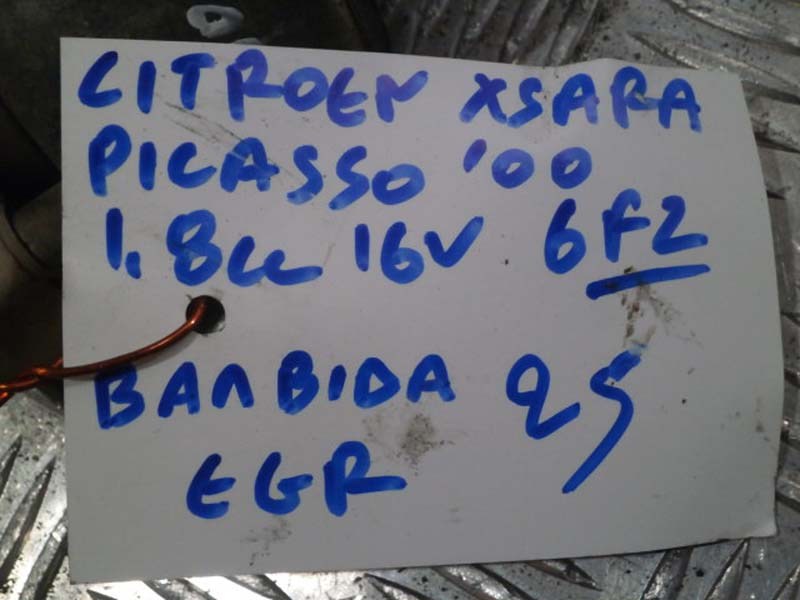 CITROEN XSARA
PICASSO '00
1.8cc 16V 6F2
BAΛBIDA 25
EGR